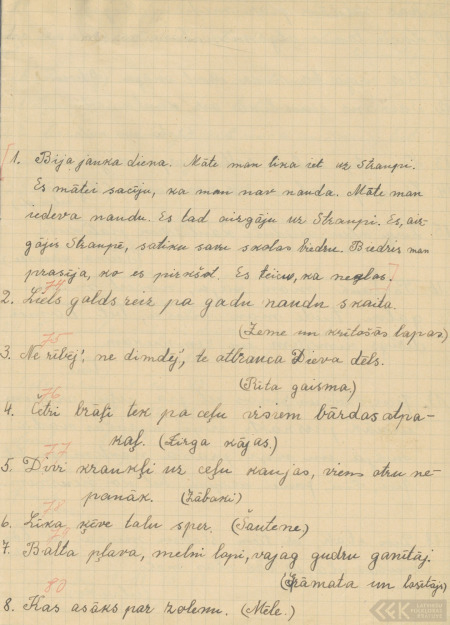 1. Bija jauka diena. Māte man lika iet uz Straupi.
Es mātei sacīju, ka man nav nauda. Māte man
iedeva naudu. Es tad aizgāju uz Straupi. Es, aiz-
gājis Straupē, satiku savu skolas biedru. Biedris man
prasīja, ko es pirkšot. Es teicu, ka
74
2. Liels galds reiz pa gadu naudu skaita.
(Zeme un krītošās lapas)
75
3. Ne rībēj', ne dimdēj', te atbrauca Dieva dēls.
(Rīta gaisma)
76
4. Četri brāļi tek pa ceļu visiem bārdas atpa-
kaļ. (Zirga kājas.)
77
5. Divi kraukļi uz ceļu kaujas, viens otru ne-
panāk. (Zābaki)
78
6. Līka ķēve talu sper. (Šautene.)
7. Balta pļava, melni lopi, vajag gudru ganītāj.
(Grāmata un lasītājs)
80
8. Kas asāks par zobenu. (Mēle.)